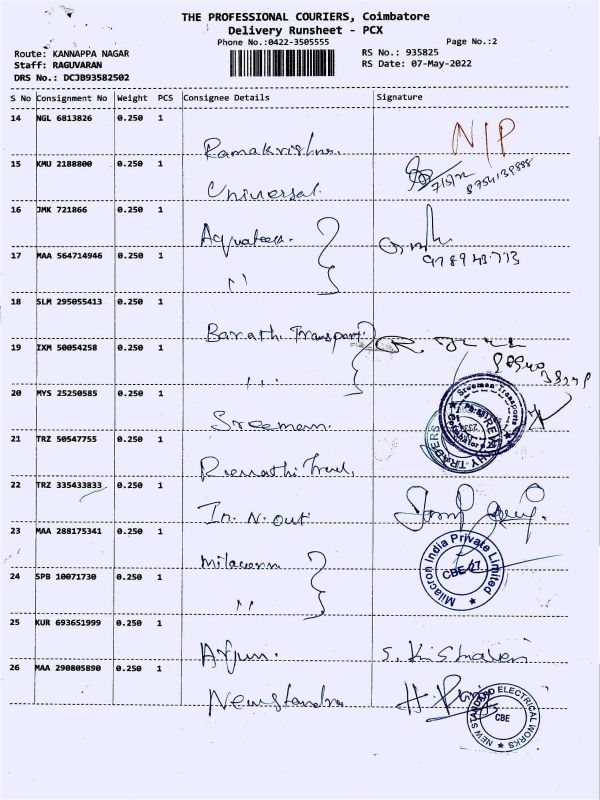 THE PROFESSIONAL COURIERS, Coimbatore
Delivery Runsheet - PCX
Phone No.:0422-3505555 Page No.:2
Route: KANNAPPA NAGAR RS No.: 935825
Staff: RAGUVARAN RS Date: 07-May-2022
DRS No.: DCJB93582502
S No Consignment No Weight PCS Consignee Details Signature
14 NGL 6813826 0.250 1
Ramakrishna. N/P
15 KMU 2188800 0.250 1
Universal. 7/5/22 8754139888
16 JMK 721866 0.250 1
Aquatech.
17 MAA 564714946 0.250 1
''
18 SLM 295055413 0.250 1
Barath Transport
19 IXM 50054258 0.250 1
''
20 MYS 25250585 0.250 1
Sreeman. Sreeman Transports
21 TRZ 50547755 0.250 1
TRADERS
22 TRZ 335433833 0.250 1
In. N. out
23 MAA 288175341 0.250 1
Milacron Milacron India Private Limited
CBE
24 SPB 10071730 0.250 1
''
25 KUR 693651999 0.250 1
Arjun.
26 MAA 290805890 0.250 1
Newstandra NEW STANDARD ELECTRICAL WORKS
CBE